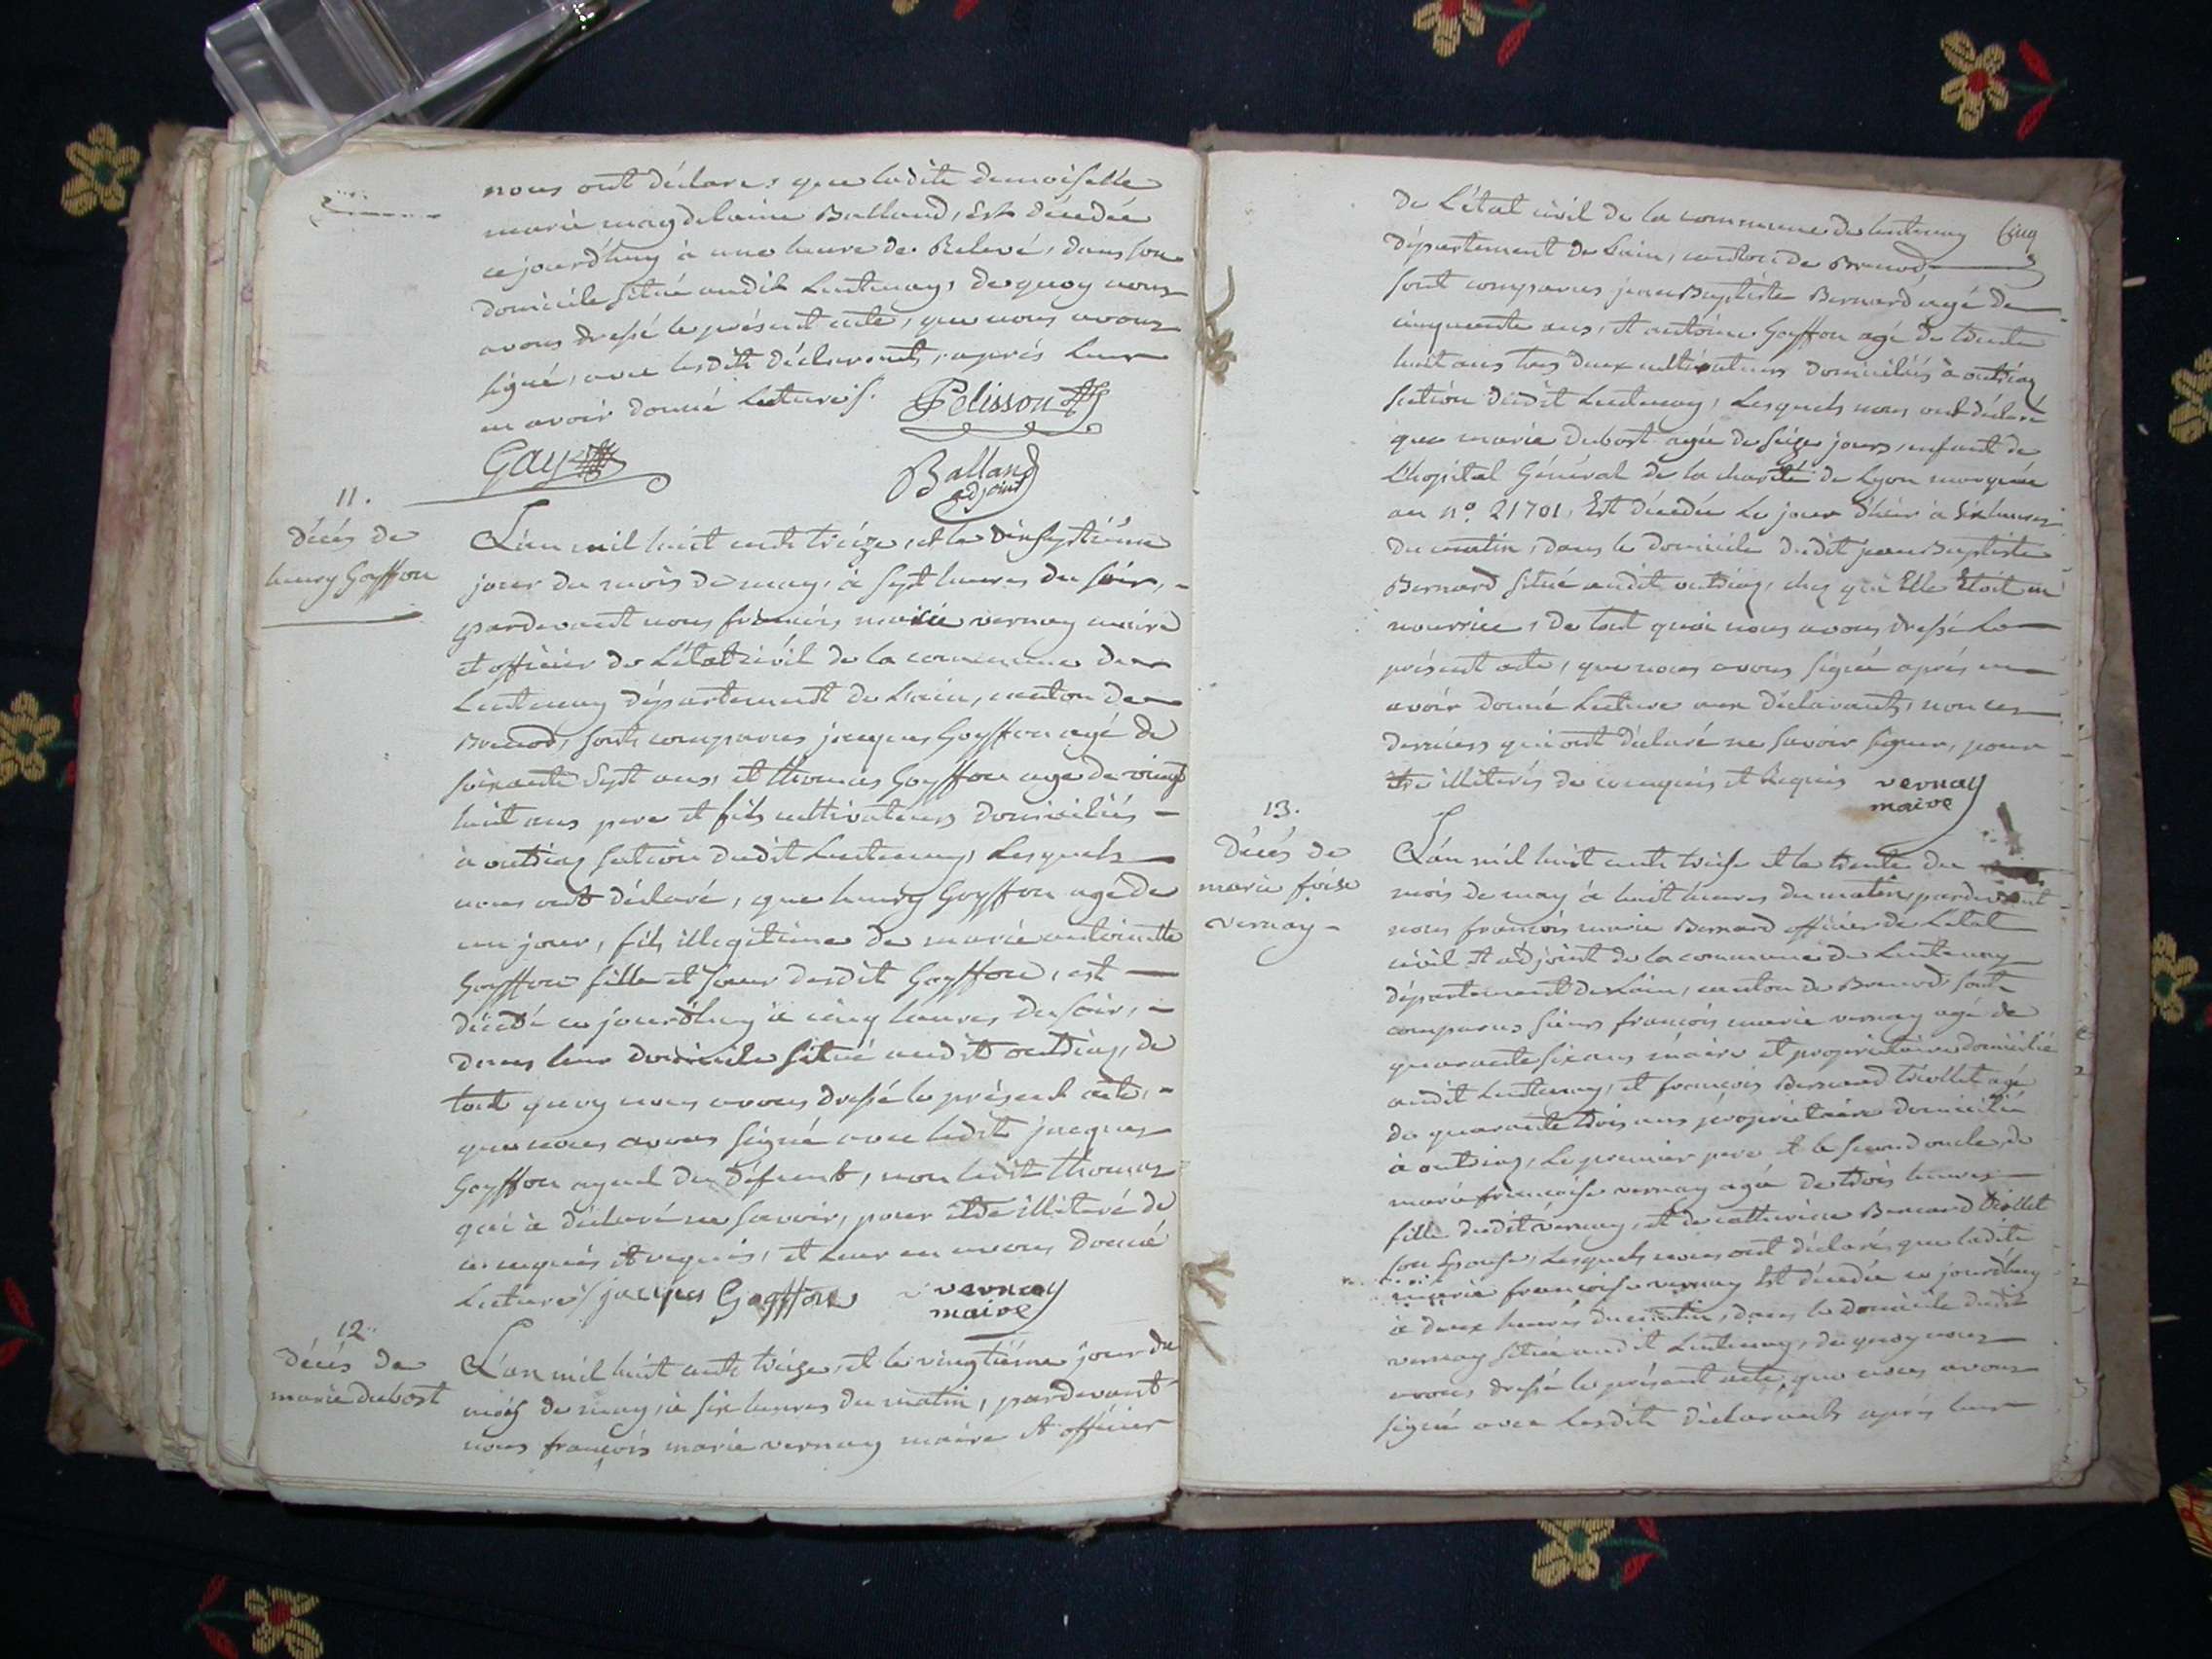 nous ont déclaré, que ladite demoiselle
marie magdelaine Balland, Est décedée
cejourd'huy à une heure de Relevé, dans son
domicile situé audit Lentenay, de quoy nous
avons dressé le présent acte, que nous avons
signé, avec lesdits déclarants, aprés leur
en avoir donné Lecture /.
Pelisson
Gay
Balland
adjoint
11.
décés de
henry Goyffon
L'an mil huit cents treize, et le dix septiéme
jour du mois de may, à sept heures du soir,
pardevant nous françois marie vernay maire
et officier de L'état civil de la commune de
Lentenay département de L'ain, canton de
Brenod, sont comparus jacques Goyffon agé de
soixante sept ans, et thomas Goyffon age de vingt
huit ans pere et fils cultivateurs domiciliés
à outriaz section dudit Lentenay, Lesquels
nous ont déclaré, que henry Goyffon agé de
un jour, fils illegitime de marie antoinette
Goyffon fille et soeur desdit Goyffon, est
décédé ce jourd'huy à cinq heures du soir,
dans leur domicile situé audit outriaz, de
tout quoy nous avons dressé le présent acte,
que nous avons signé avec ledit jacques
Goyffon ayeul du défunt, non ledit thomas
qui à déclaré ne savoir, pour etre illiteré de
ce enquis et requis, et leur en avons donné
Lecture / jacques Goyffon vernay
maire
12.
décés de
marie dubost
L'an mil huit cents treize, et le vingtiéme jour du
mois de may, à six heures du matin, pardevant
nous françois marie vernay maire et officier
de L'état civil de la commune de lentenay cinq
département de L'ain, canton de Brenod
sont comparus jean Baptiste Bernard agé de
cinquante ans, et antoine Goyffon agé de trente
huit ans tous deux cultivateurs domiciliés à outriaz
section dudit Lentenay, Lesquels nous ont déclaré
que marie dubost agée de seize jours, enfant de
L'hopital Général de la charité de Lyon marquée
au n°. 21701. Est décedée Le jour d'hier à six heures
du matin, dans le domicile dudit jean Baptiste
Bernard situé audit outriaz, chez qui Elle Etoit en
nourrice, de tout quoi nous avons dressé Le
présent acte, que nous avons signé aprés en
avoir donné Lecture aux déclarants, non ces
derniers qui ont déclaré ne savoir signer, pour
être illiterés de ce enquis et Requis vernay
maire
13.
décés de
marie foise
vernay
L'an mil huit cents treise et le trente du
mois de may à huit heures du matin, pardevant
nous françois marie Bernard officier de L'état
civil et adjoint de la commune de Lentenay
département de L'ain, canton de Brenod sont
comparus sieurs françois marie vernay agé de
quarante six ans maire et proprietaire domicilié
audit Lentenay, et françois Bernard triollet agé
de quarante trois ans proprietaire domicilié
à outriaz, Le premier pere et le second oncle de
marie françoise vernay agée de trois heures
fille dudit vernay, et de catherine Bernard triollet
son Epouse, Lesquels nous ont déclaré, que ladite
marie françoise vernay Est décedée ce jourd'huy
à deux heures du matin, dans le domicile dudit
vernay situé audit Lentenay, de quoy nous
avons dressé le présent acte, que nous avons
signé avec Lesdits déclarants aprés leur